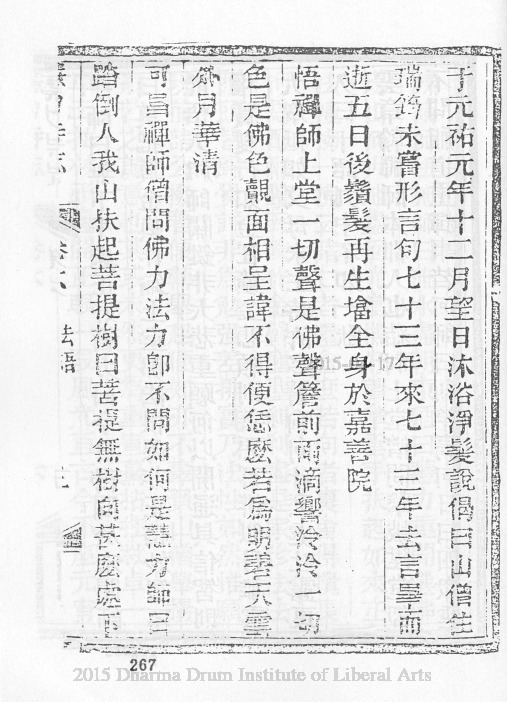 于元祐元年十二月望日沐浴淨髮說偈曰山僧住
瑞筠未嘗形言句七十三年來七十三年去言畢而
逝五日後鬚髮再生塔全身於嘉善院
悟禪師上堂一切聲是佛聲簷前雨滴響泠泠一切
色是佛色覿面相呈諱不得便恁麼若為明碧天雲
外月華清
可昌禪師僧問佛力法力即不問如何是慧力師曰
踏倒人我山扶起菩提樹曰菩提無樹向甚麼處下
寺志 卷六 法語
267
2015 Dharma Drum Institute of Liberal Arts